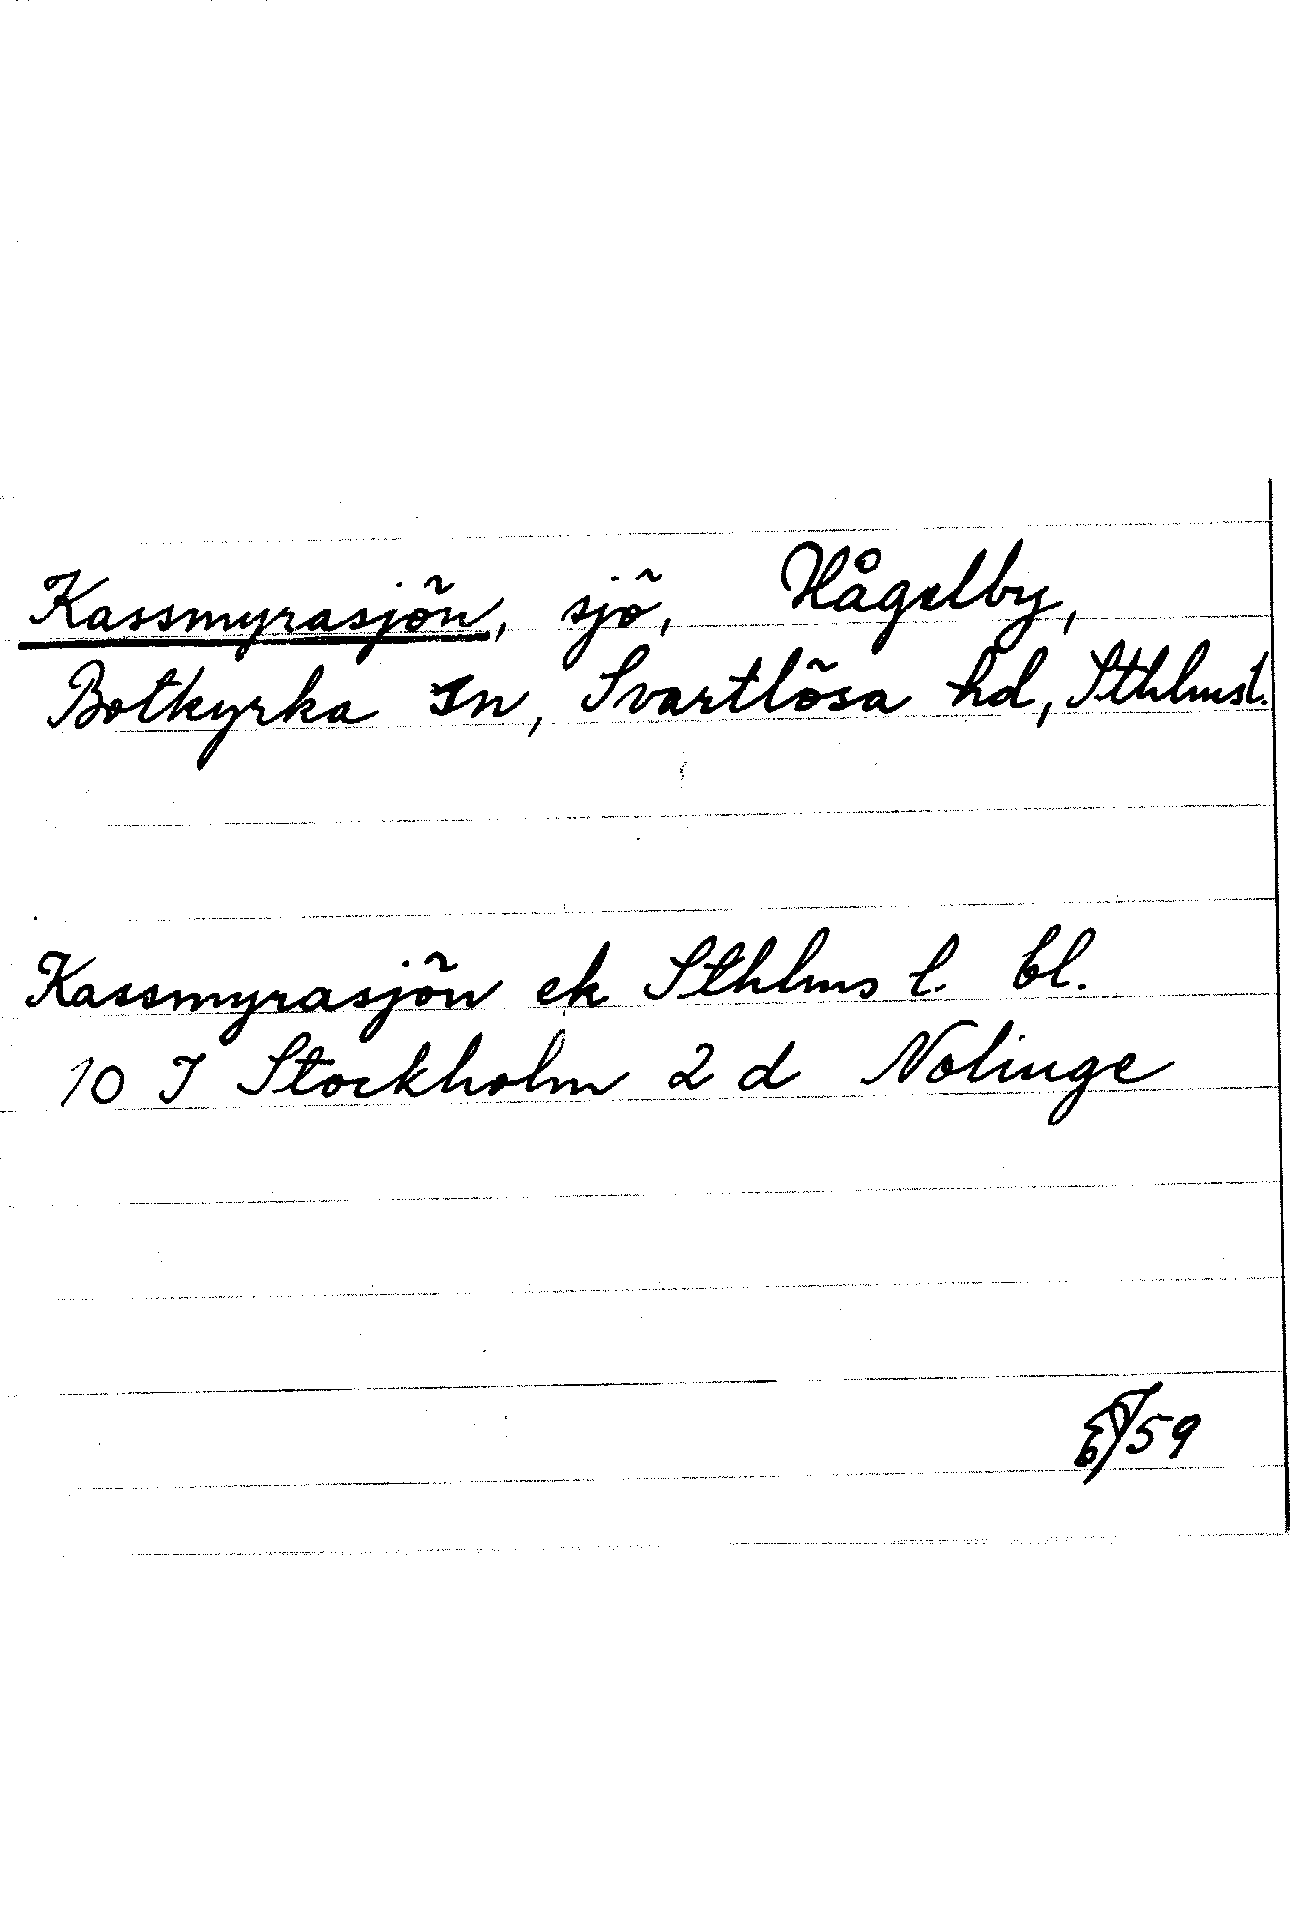 Kassmyrasjön, sjö, Hågelby,
Botkyrka sn, Svartlösa hd, Sthlmsl.
Kassmyrasjön ek Sthlms l. bl.
10 I Stockholm 2 d Nolinge
/59